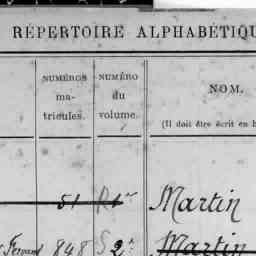 RÉPERTOIRE ALPHABÉTIQU
NUMÉROS
ma-
tricules.
NUMÉRO
du
volume.
NOM.
(Il doit être écrit en b
51 Martin
Fernand 848 2e Martin